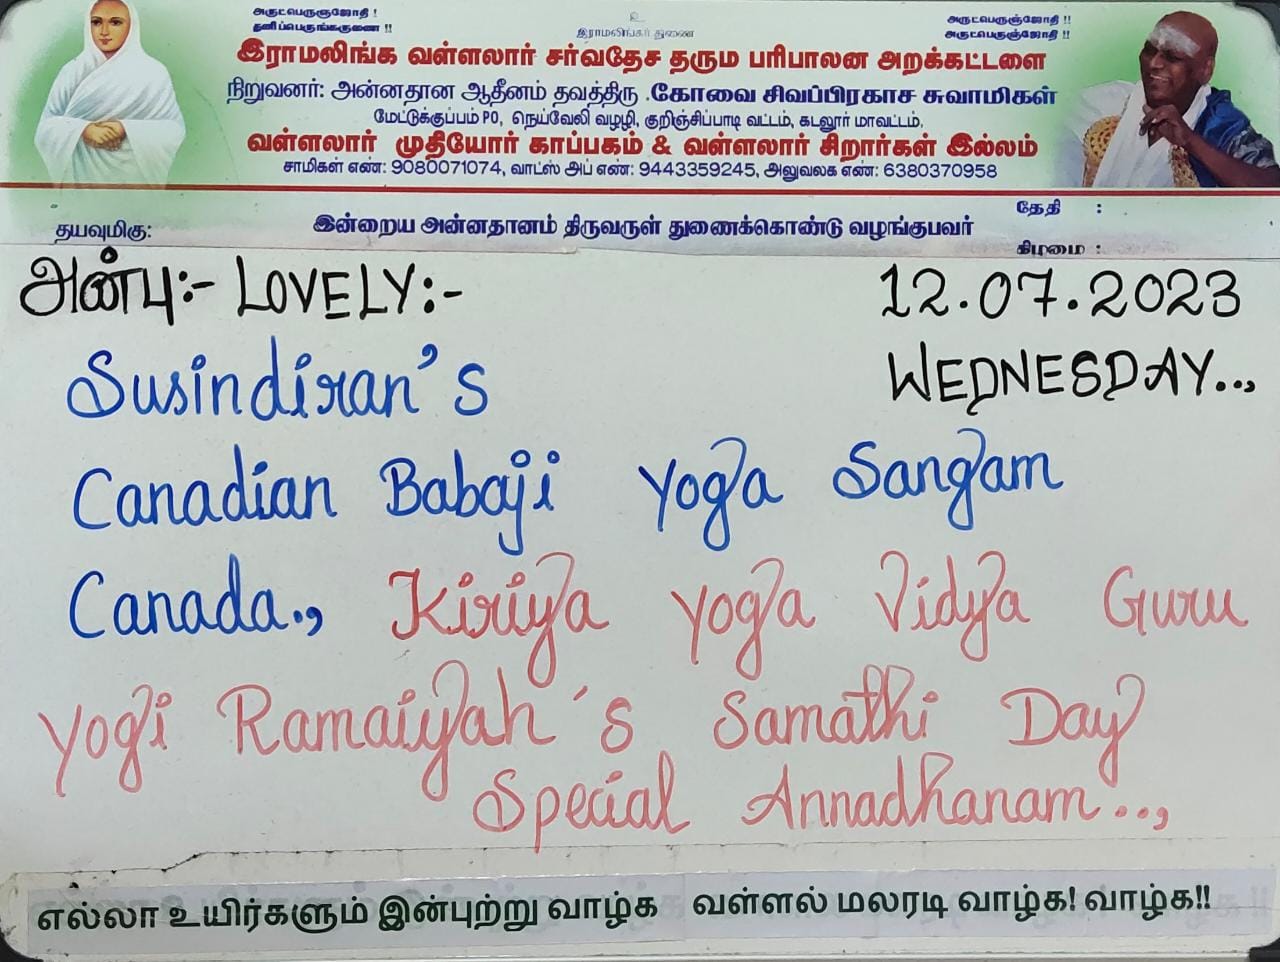 அருட்பெருஞ்ஜோதி !
தனிப்பெருங்கருணை !!
உ
இராமலிங்கர் துணை
அருட்பெருஞ்ஜோதி !!
அருட்பெருஞ்ஜோதி !!
இராமலிங்க வள்ளலார் சர்வதேச தரும பரிபாலன அறக்கட்டளை
நிறுவனர்: அன்னதான ஆதீனம் தவத்திரு .கோவை சிவப்பிரகாச சுவாமிகள்
மேட்டுக்குப்பம் PO, நெய்வேலி வழி, குறிஞ்சிப்பாடி வட்டம், கடலூர் மாவட்டம்.
வள்ளலார் முதியோர் காப்பகம் & வள்ளலார் சிறார்கள் இல்லம்
சாமிகள் எண்: 9080071074, வாட்ஸ் அப் எண்: 9443359245, அலுவலக எண்: 6380370958
தயவுமிகு:
இன்றைய அன்னதானம் திருவருள் துணைக்கொண்டு வழங்குபவர்
தேதி :
கிழமை :
அன்பு:- LOVELY:-
12.07.2023
WEDNESDAY..,
Susindiran's
Canadian Babaji Yoga Sangam
Canada., Kiriya Yoga Vidya Guru
Yogi Ramaiyah's Samathi Day
Special Annadhanam..,
எல்லா உயிர்களும் இன்புற்று வாழ்க வள்ளல் மலரடி வாழ்க! வாழ்க!!